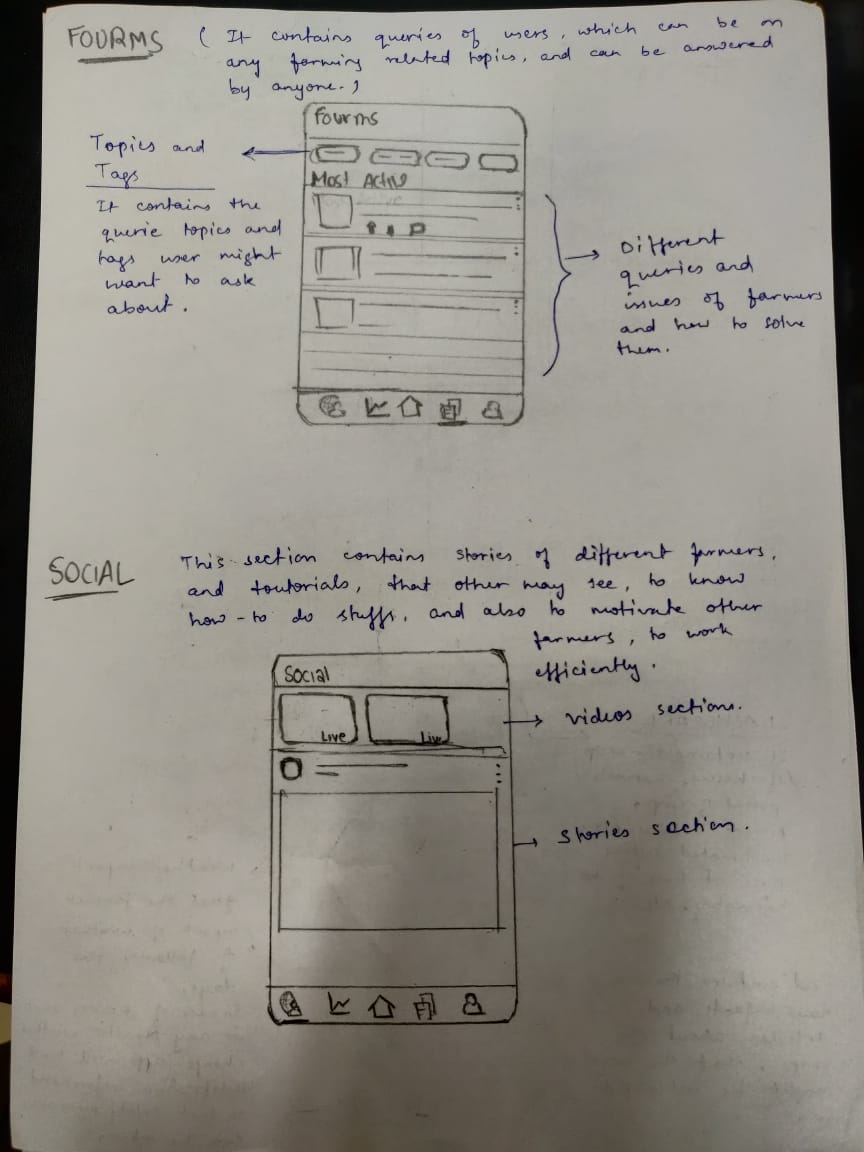 FOURMS
( It contains queries of users, which can be on
any farming related topics, and can be answered
by anyone.)
Fourms
Most Active
Topics and
Tags
It contains the
querie topics and
tags user might
want to ask
about.
Different
queries and
issues of farmers
and how to solve
them.
SOCIAL
This section contains stories of different farmers,
and toutorials, that other may see, to know
how-to do stuffs, and also to motivate other
farmers, to work
efficiently.
Social
Live
Live
videos sections.
Stories section.